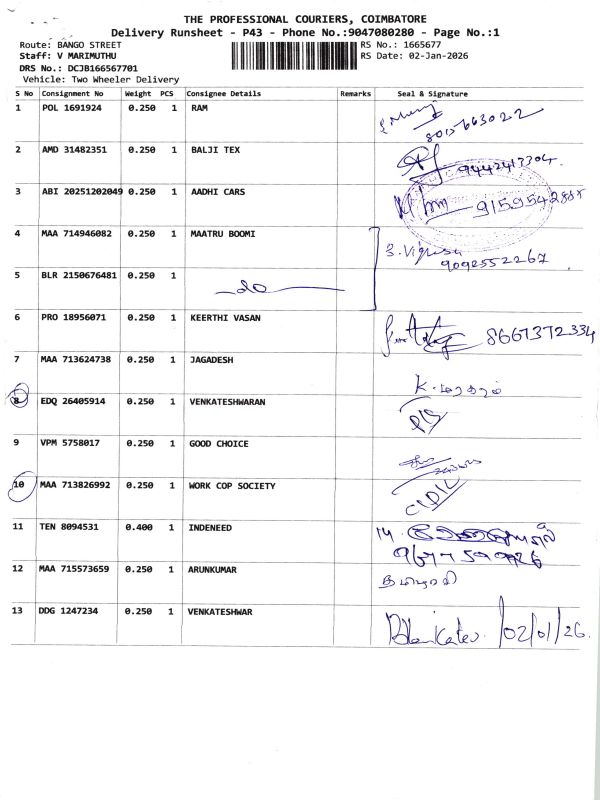 THE PROFESSIONAL COURIERS, COIMBATORE
Delivery Runsheet - P43 - Phone No.:9047080280 - Page No.:1
Route: BANGO STREET
RS No.: 1665677
Staff: V MARIMUTHU
RS Date: 02-Jan-2026
DRS No.: DCJB166567701
Vehicle: Two Wheeler Delivery
S No Consignment No Weight PCS Consignee Details Remarks Seal & Signature
1 POL 1691924 0.250 1 RAM
8015663022
2 AMD 31482351 0.250 1 BALJI TEX
9442417304
3 ABI 20251202049 0.250 1 AADHI CARS
4 MAA 714946082 0.250 1 MAATRU BOOMI
9092552267
5 BLR 2150676481 0.250 1
6 PRO 18956071 0.250 1 KEERTHI VASAN 8667372334
7 MAA 713624738 0.250 1 JAGADESH
8 EDQ 26405914 0.250 1 VENKATESHWARAN
9 VPM 5758017 0.250 1 GOOD CHOICE
10 MAA 713826992 0.250 1 WORK COP SOCIETY
11 TEN 8094531 0.400 1 INDENEED
12 MAA 715573659 0.250 1 ARUNKUMAR
13 DDG 1247234 0.250 1 VENKATESHWAR 02/01/26.